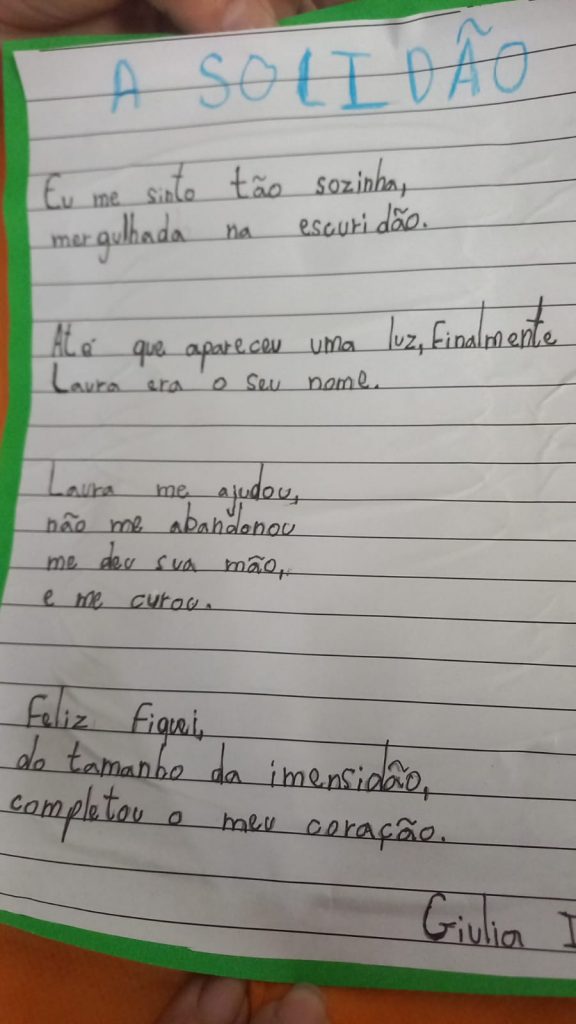 A SOLIDÃO
Eu me sinto tão sozinha,
mergulhada na escuridão.
Até que apareceu uma luz, finalmente
Laura era o seu nome.
Laura me ajudou,
não me abandonou
me deu sua mão,
e me curou.
Feliz fiquei,
do tamanho da imensidão,
completou o meu coração.
Giulia I